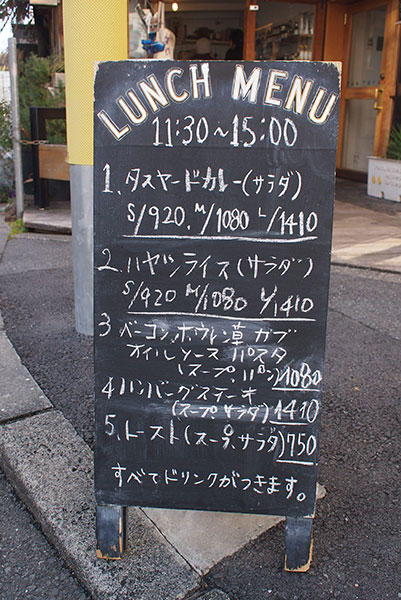 LUNCH MENU
11:30～15:00
1、タスヤードカレー(サラダ)
S/920、M/1080 L/1410
2、ハヤシライス(サラダ)
S/920 M/1080 L/1410
3 ベーコン、ホウレン草 カブ
オイルソース パスタ
(スープ、パン)1080
4 ハンバーグステーキ
(スープ、サラダ)1410
5、トースト(スープ、サラダ)750
すべてドリンクがつきます。